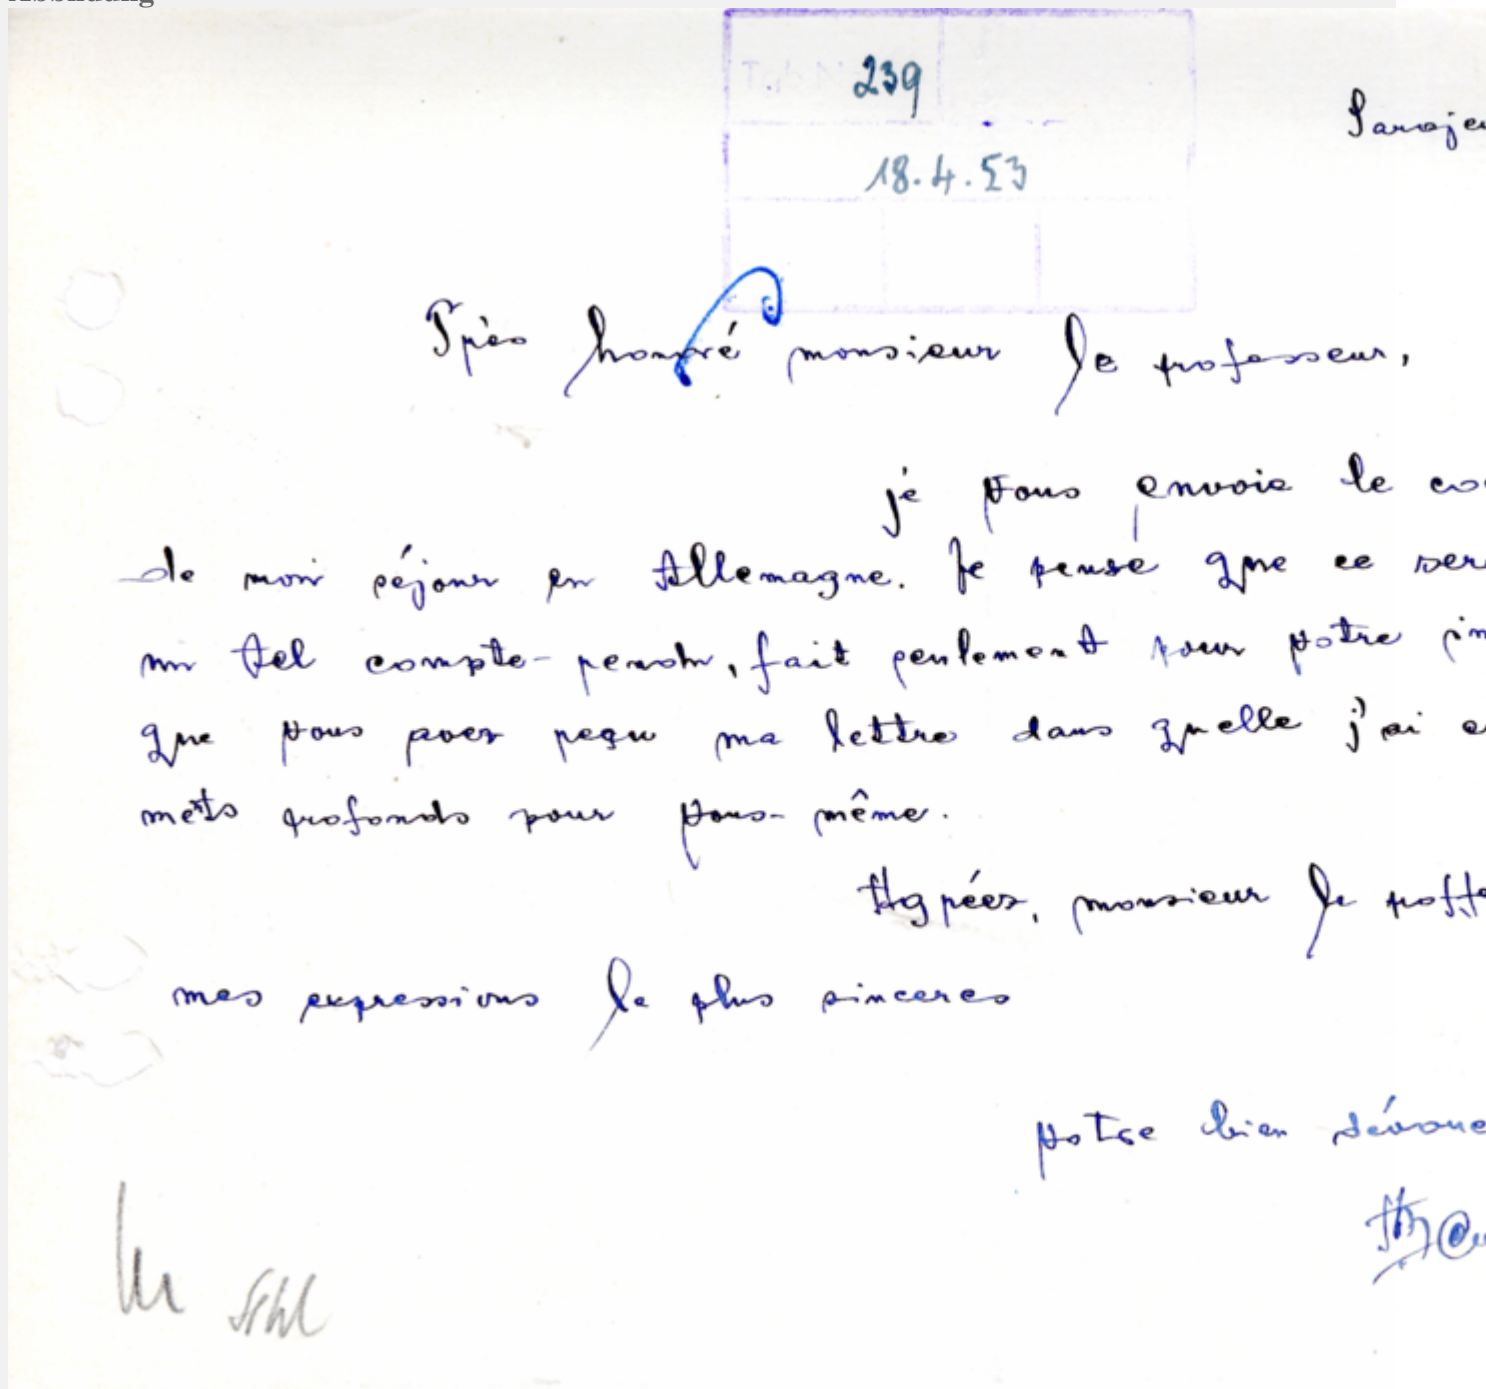 239
Saraje
18.4.53
Très honoré monsieur le professeur,
je vous envoie le co
de mon séjour en Allemagne. Je pense que ce ser
un tel compte-rendu, fait seulement pour votre in
que vous avez reçu ma lettre dans quelle j'ai e
profonds pour vous-même.
Agréez, monsieur le
mes expressions le plus sinceres
votre bien dévoue